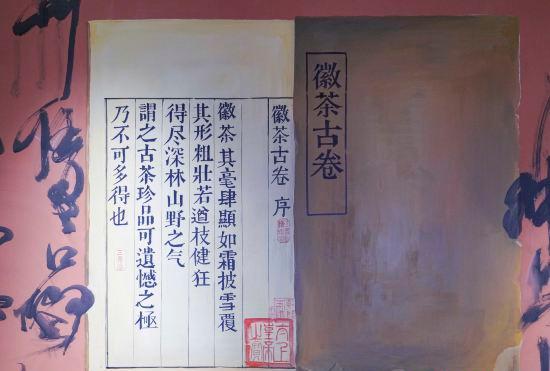 徽茶古卷
徽茶古卷 序
徽茶其毫肆顯如霜披雪覆
其形粗壯若遒枝健狂
得尽深林山野之气
謂之古茶珍品可遺憾之極
乃不可多得也
太上皇帝之寶